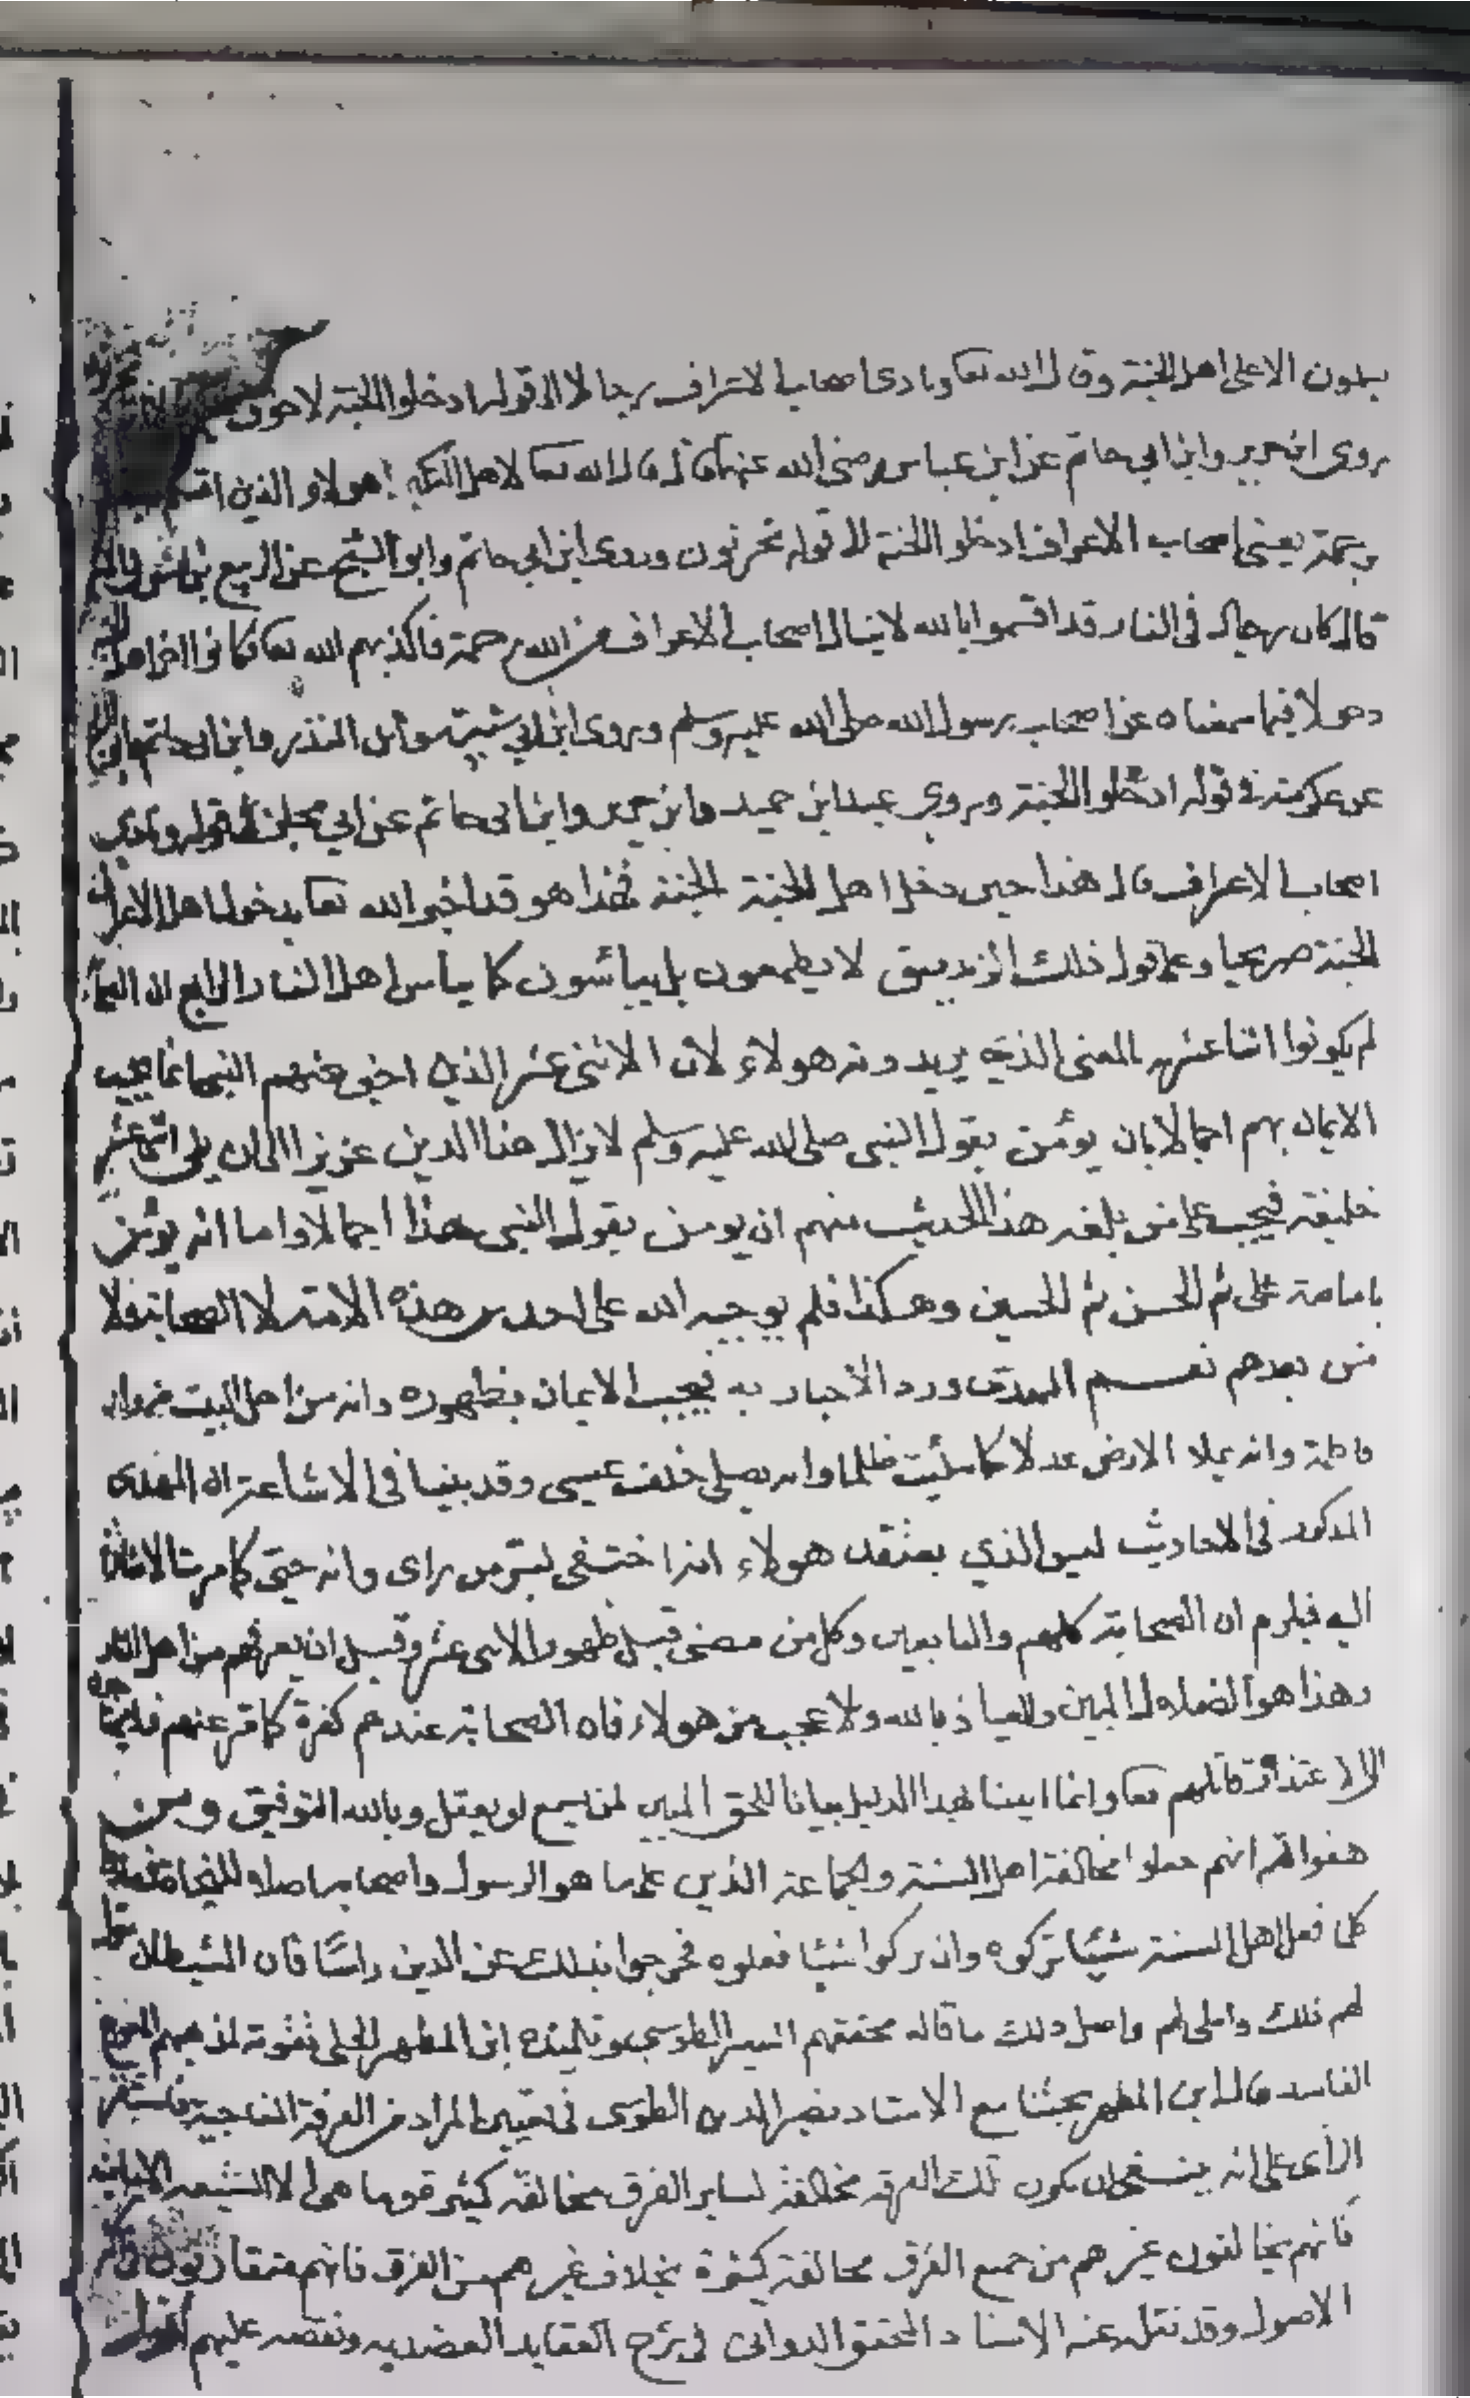 يدون الاعلى اهل الجنة وقال الله تعا ونادى اصحاب الاعراف رجالا الى قوله ادخلوا الجنة لا خوف
روى ابن جرير وابن ابي حاتم عن ابن عباس رضي الله عنهما قال قال الله تعا لاهل التكبر اهولاء الذين
برحمة يعني اصحاب الاعراف ادخلوا الجنة الى قوله تحزنون وروى ابن ابي حاتم وابو الشيخ عن الربيع بن
قال كان رجال في النار قد اقسموا بالله لا ينال اصحاب الاعراف من الله رحمة فاكذبهم الله تعا فكانوا اخر اهل
دخولا فيما سمعناه عن اصحاب رسول الله صلى الله عليه وسلم وروى ابن ابي شيبة وابن المنذر وابن ابي حاتم
عن عكرمة في قوله ادخلوا الجنة وروى عبد ابن حميد وابن جرير وابن ابي حاتم عن ابي مجلز في قوله ونادى
اصحاب الاعراف قال هذا حين دخل اهل الجنة الجنة فهذا هو قد اخبر الله تعا بدخول اهل الاعراف
الجنة صريحا وعلى قول ذلك الزنديق لا يطمعون بل ييأسون كما ييأس اهل النار الرابع ان
لم يكونوا اثنا عشريه بالمعنى الذي يريدونه هولاء لان الاثني عشر الذي اخبر عنهم النبي انما يجب
الايمان بهم اجمالا بان يؤمن بقول النبي صلى الله عليه وسلم لا يزال هذا الدين عزيزا الى ان يلي اثنى عشر
خليفة فيجب على من بلغه هذا الحديث منهم ان يومن بقول النبي هذا اجمالا واما انه يؤمن
بامامة علي ثم الحسن ثم الحسين وهكذا فلم يوجبه الله على احد من هذه الامة لا الصحابة ولا
من بعدهم نعم المهدي ورد الاخبار به فيجب الايمان بظهوره وانه من اهل البيت من ولد
فاطمة وانه يملا الارض عدلا كما ملئت ظلما وانه يصلي خلف عيسى وقد بينا في الاشاعة ان المهدى
المذكور في الاحاديث ليس الذي يعتقد هولاء انه اختفى بسر من راى وانه حي كما مرت الاشارة
اليه فيلزم ان الصحابة كلهم والتابعين وكل من مضى قبل ظهور الاثنى عشر وقبل ان يعرفهم من اهل النار
وهذا هو الضلال المبين والعياذ بالله ولا عجب من هولاء فان الصحابة عندهم كفرة كما مر عنهم
قاتلهم تعا وانما اتينا بهذا الدليل بيانا للحق المبين لمن يسمع او يعقل وبالله التوفيق ومن
هفواتهم انهم جعلوا مخالفة اهل السنة والجماعة الذين على ما هو الرسول واصحابه اصلا للنجاة
كلما فعل اهل السنة شيئا تركوه وان تركوا شيئا فعلوه فخرجوا بذلك عن الدين راسا فان الشيطان
لهم ذلك واملى لهم واصل ذلك ما قاله محققهم النصير الطوسي وتلميذه ابن المطهر الحلي تقوية لمذهبهم
الفاسد قال ابن المطهر بحثنا مع الاستاد نصير الدين الطوسى في تعيين المراد من الفرقة الناجية فاستقر
الرأى على انه ينبغي ان يكون تلك الفرقة مخالفة لساير الفرق مخالفة كثيرة وما هي الا الشيعة الامامية
فانهم يخالفون غيرهم من جميع الفرق مخالفة كثيرة بخلاف غيرهم من الفرق فانهم متقاربون في اكثر
الاصول وقد نقل عنه الاستاد المحقق الدوانى في شرح العقايد العضديه ونقضه عليهم